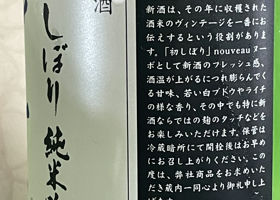 酒
しぼり 純米
新酒は、その年に収穫された
酒米のヴィンテージを一番にお
伝えするという役割がありま
す。「初しぼり」nouveauヌー
ボとして新酒のフレッシュ感、
酒温が上がるにつれ膨らんでく
る甘味、若い白ブドウやライチ
の様な香り、その中でも特に新
酒ならではの麹のタッチなどを
お楽しみいただけます。保管は
冷蔵暗所にて開栓後はお早め
にお召し上がりください。この
度は、弊社商品をお求めいた
だき蔵内一同心より御礼申し上